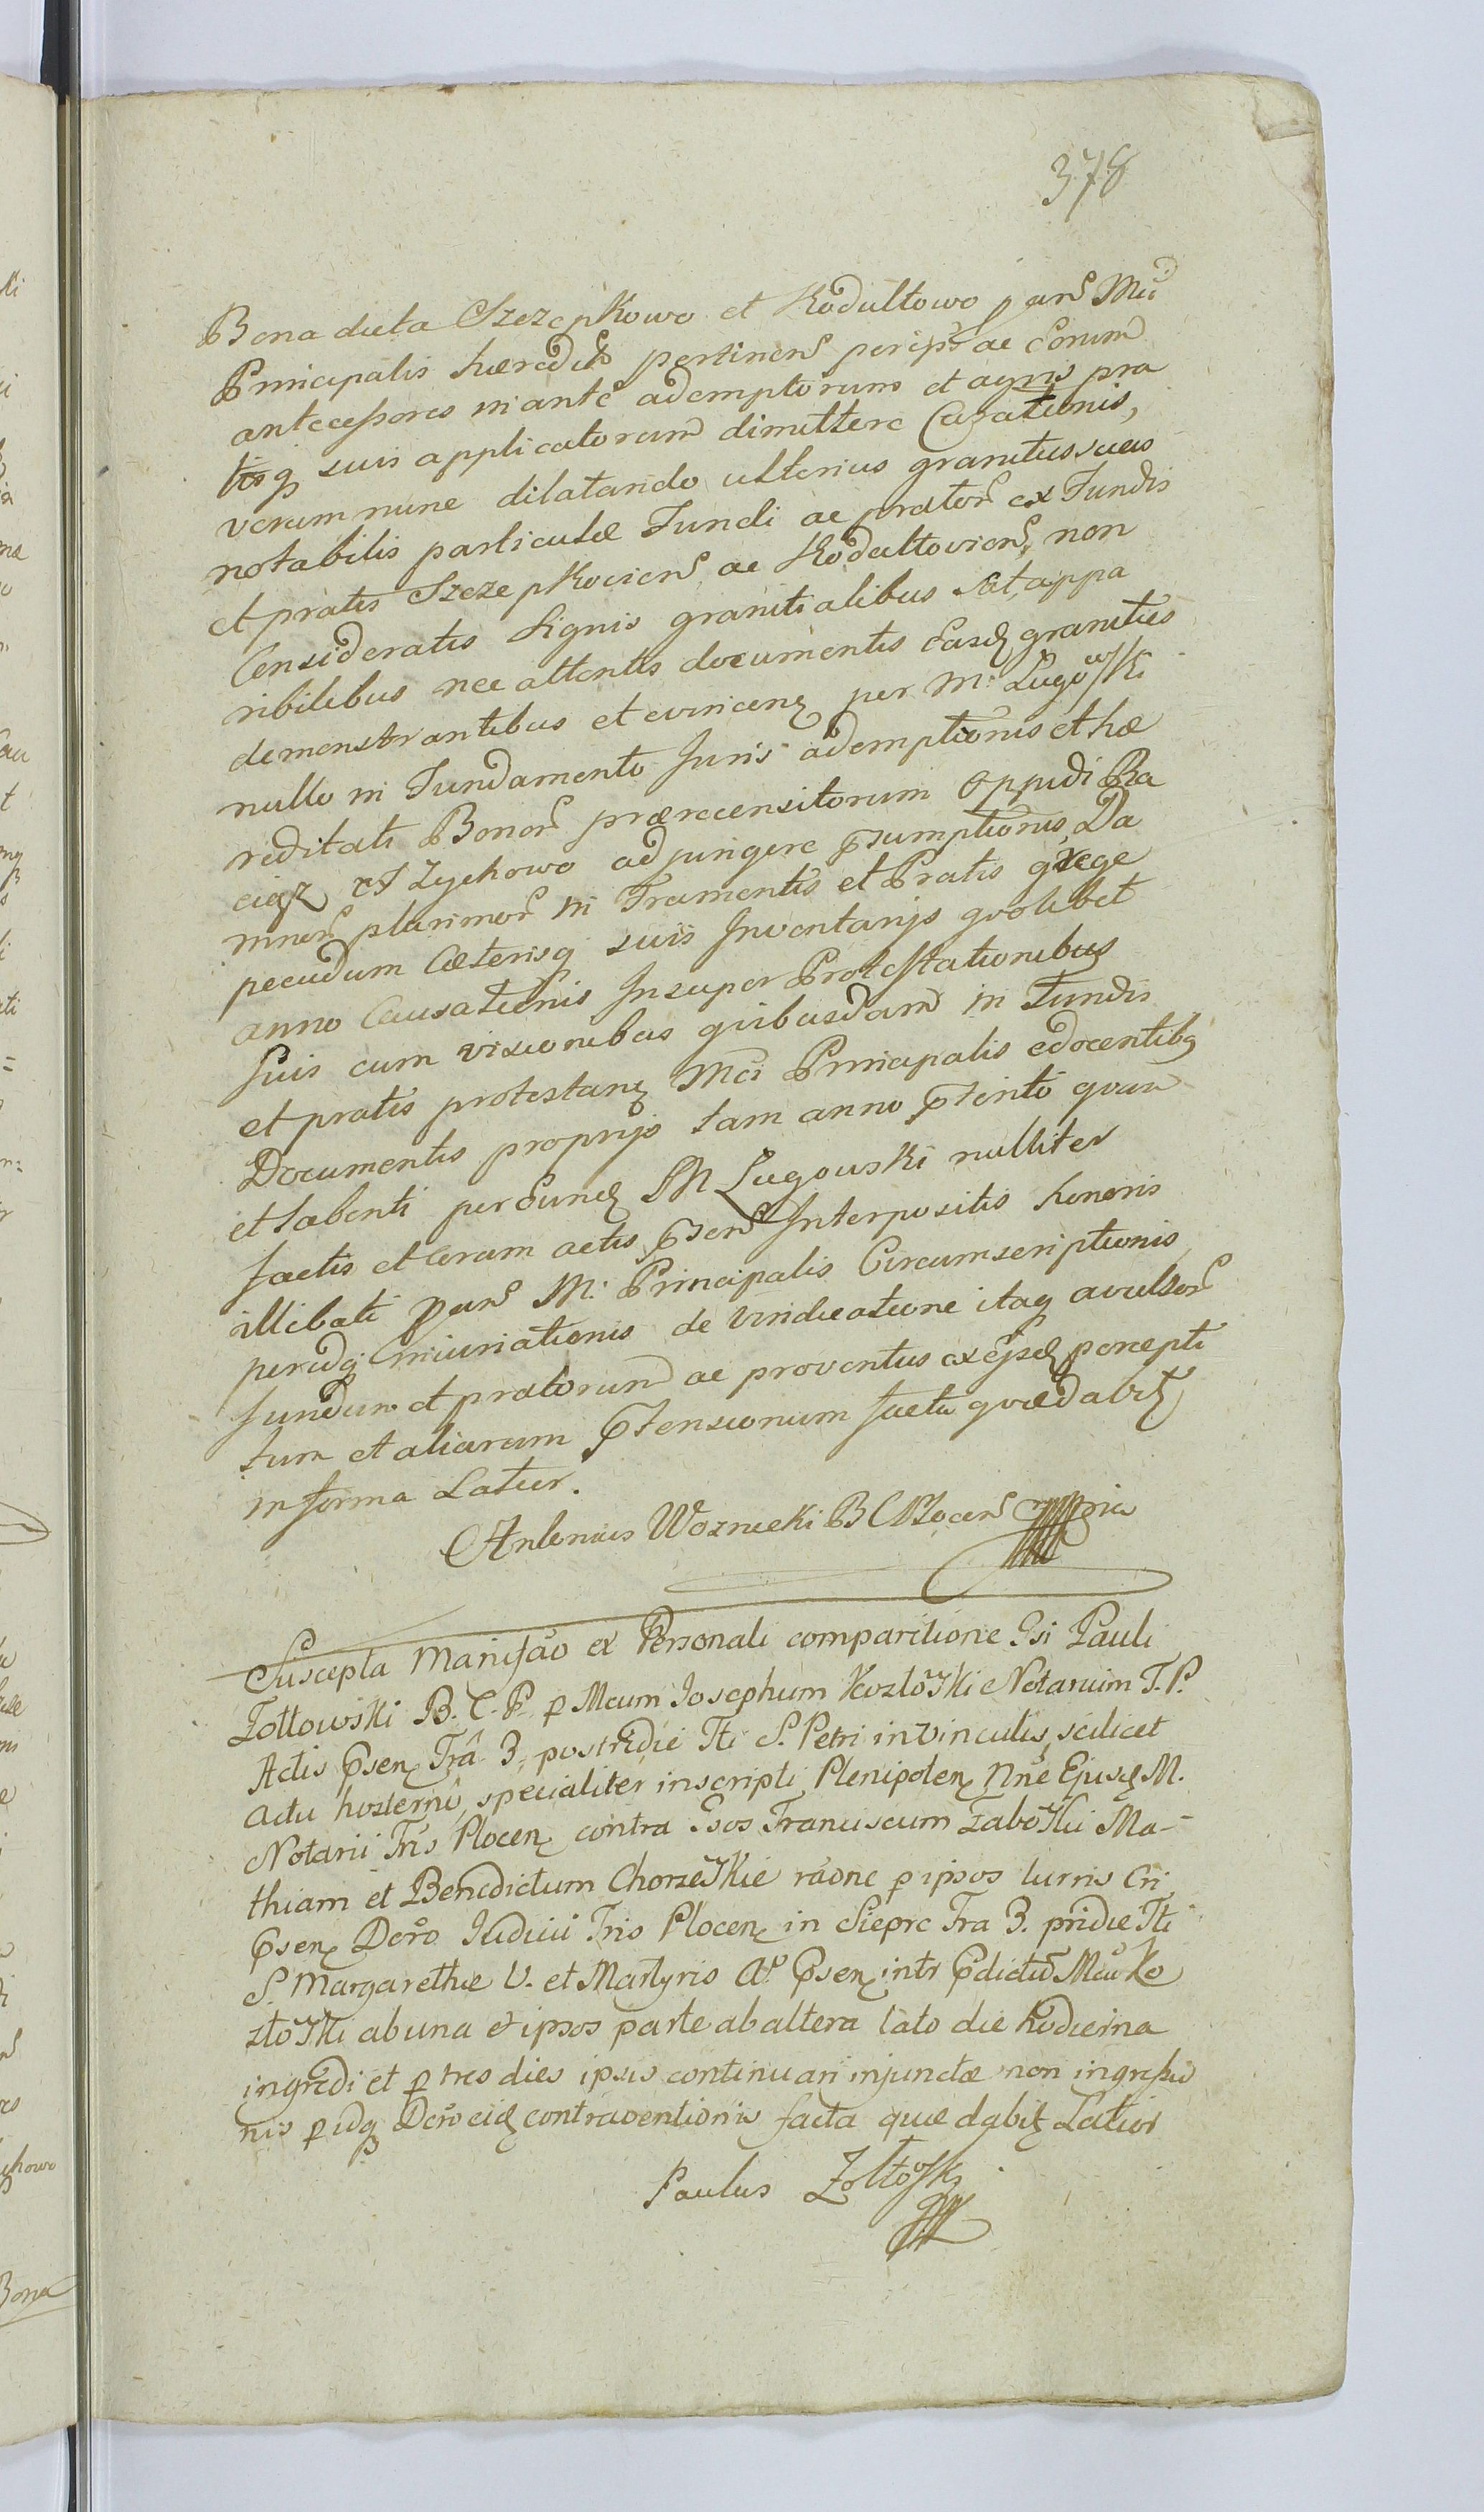 378
Bona dicta Szczepkowo et Kodułtowo parñ Mci
Principalis hæredit pertinenẽ per ips ac Eorum
antecessores in ante ademptorum et agris pra
tisq suis applicatorum dimittere Curationis,
verum nunc dilatando ulterius granities suas
notabilis particulæ Fundi ac prator ex Fundis
et pratis Szczepkovien ac Kodułtovien, non
Consideratis Signis granitialibus sat, appa
ribilibus nec attentis documentis Easd granities
demonstrantibus et evincen per M. Ługowski
nullo in Fundamento Juris ademptionis et hæ
reditati Bonor prærecensitorum Oppidi Ra
ciąz et Zychowo adjungere Psumptionis, Da
mnor plurimor in Framentis et Pratis grege
pecudum Cæterisq suis Inventarijs quolibet
anno Causationis Insuper Protestationibus
suis cum visionibus quibusdam in Fundis
et pratis protestan Mci Principalis edocentibq
Documentis proprijs tam anno Pterito quam
et labenti per Eund M Ługowski nulliter
factis et Coram actis Psen Interpositis honoris
illibati Parñ M. Principalis Circumscriptionis
peridq Iniuriationis de Vindicatione itaq avulsor
fundum et pratorum ac proventus ex ejsd percepti
tum et aliarum Ptensionum facta quæ dabit
in forma Latior.
Antonius Woznicki B C Plocen mppria
Suscepta Manifaõ ex Personali comparitione Gsi Pauli
Żółtowski B. C. P. p Mcum Josephum Kozłowski Notarium T. P.
Actis Psen Frâ 3. postridie Fti S. Petri in Vinculis, scilicet
actu hesterno, specialiter inscripti Plenipoten Nñe Ejusd M.
Notarii Tris Plocen contra Gsos Franciscum Zaboski Ma-
thiam et Benedictum Chorzewskie raõne p ipsos turris Cri
Psen Decro Iudicii Tris Plocen in Sieprc Fra 3. pridie Fti
S. Margarethæ V. et Martyris A. Psen intr Pdictũ Mcũ Ko
złowski ab una et ipsos parte ab altera lato die hodierna
ingredi et p tres dies ipsis continuari injunctæ non ingressio
nis p idq Decro eid contraventionis facta quæ dabit Latior
Paulus Żółtowski